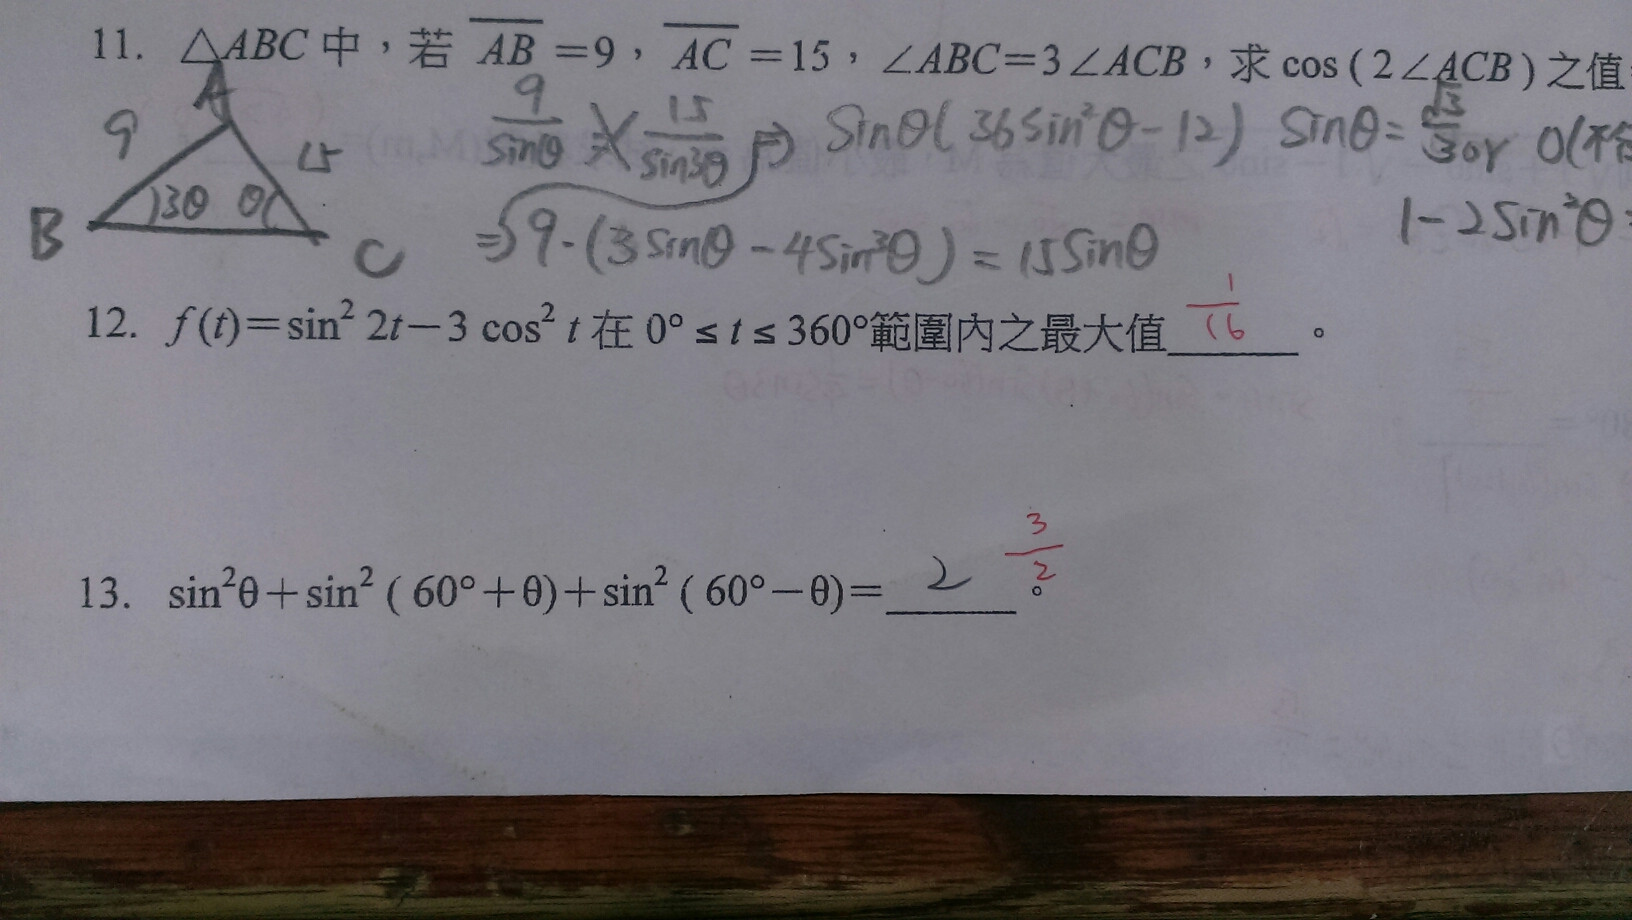 11. △ABC 中，若 AB =9，AC =15，∠ABC=3∠ACB，求 cos ( 2∠ACB ) 之值
A
9
15
B
3θ θ
C
9/sinθ = 15/sin3θ ⇒ Sinθ( 36Sin²θ-12 ) Sinθ= √3/3 or 0(不
⇒ 9·(3Sinθ - 4Sin³θ) = 15Sinθ
1-2Sin²θ=
12. f (t)=sin² 2t-3 cos² t 在 0° ≤ t ≤ 360°範圍內之最大值 1/16 。
13. sin²θ+sin² ( 60°+θ)+sin² ( 60°-θ)= 2 3/2 。